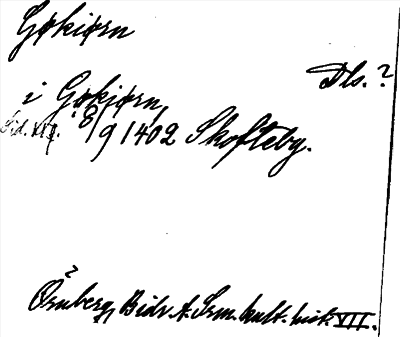 Gøkiørn
Dls.?
i Gøkiørn,
8/9 1402 Skofteby.
Örnberg, Bidr t. Srm. kult. hist. VII.